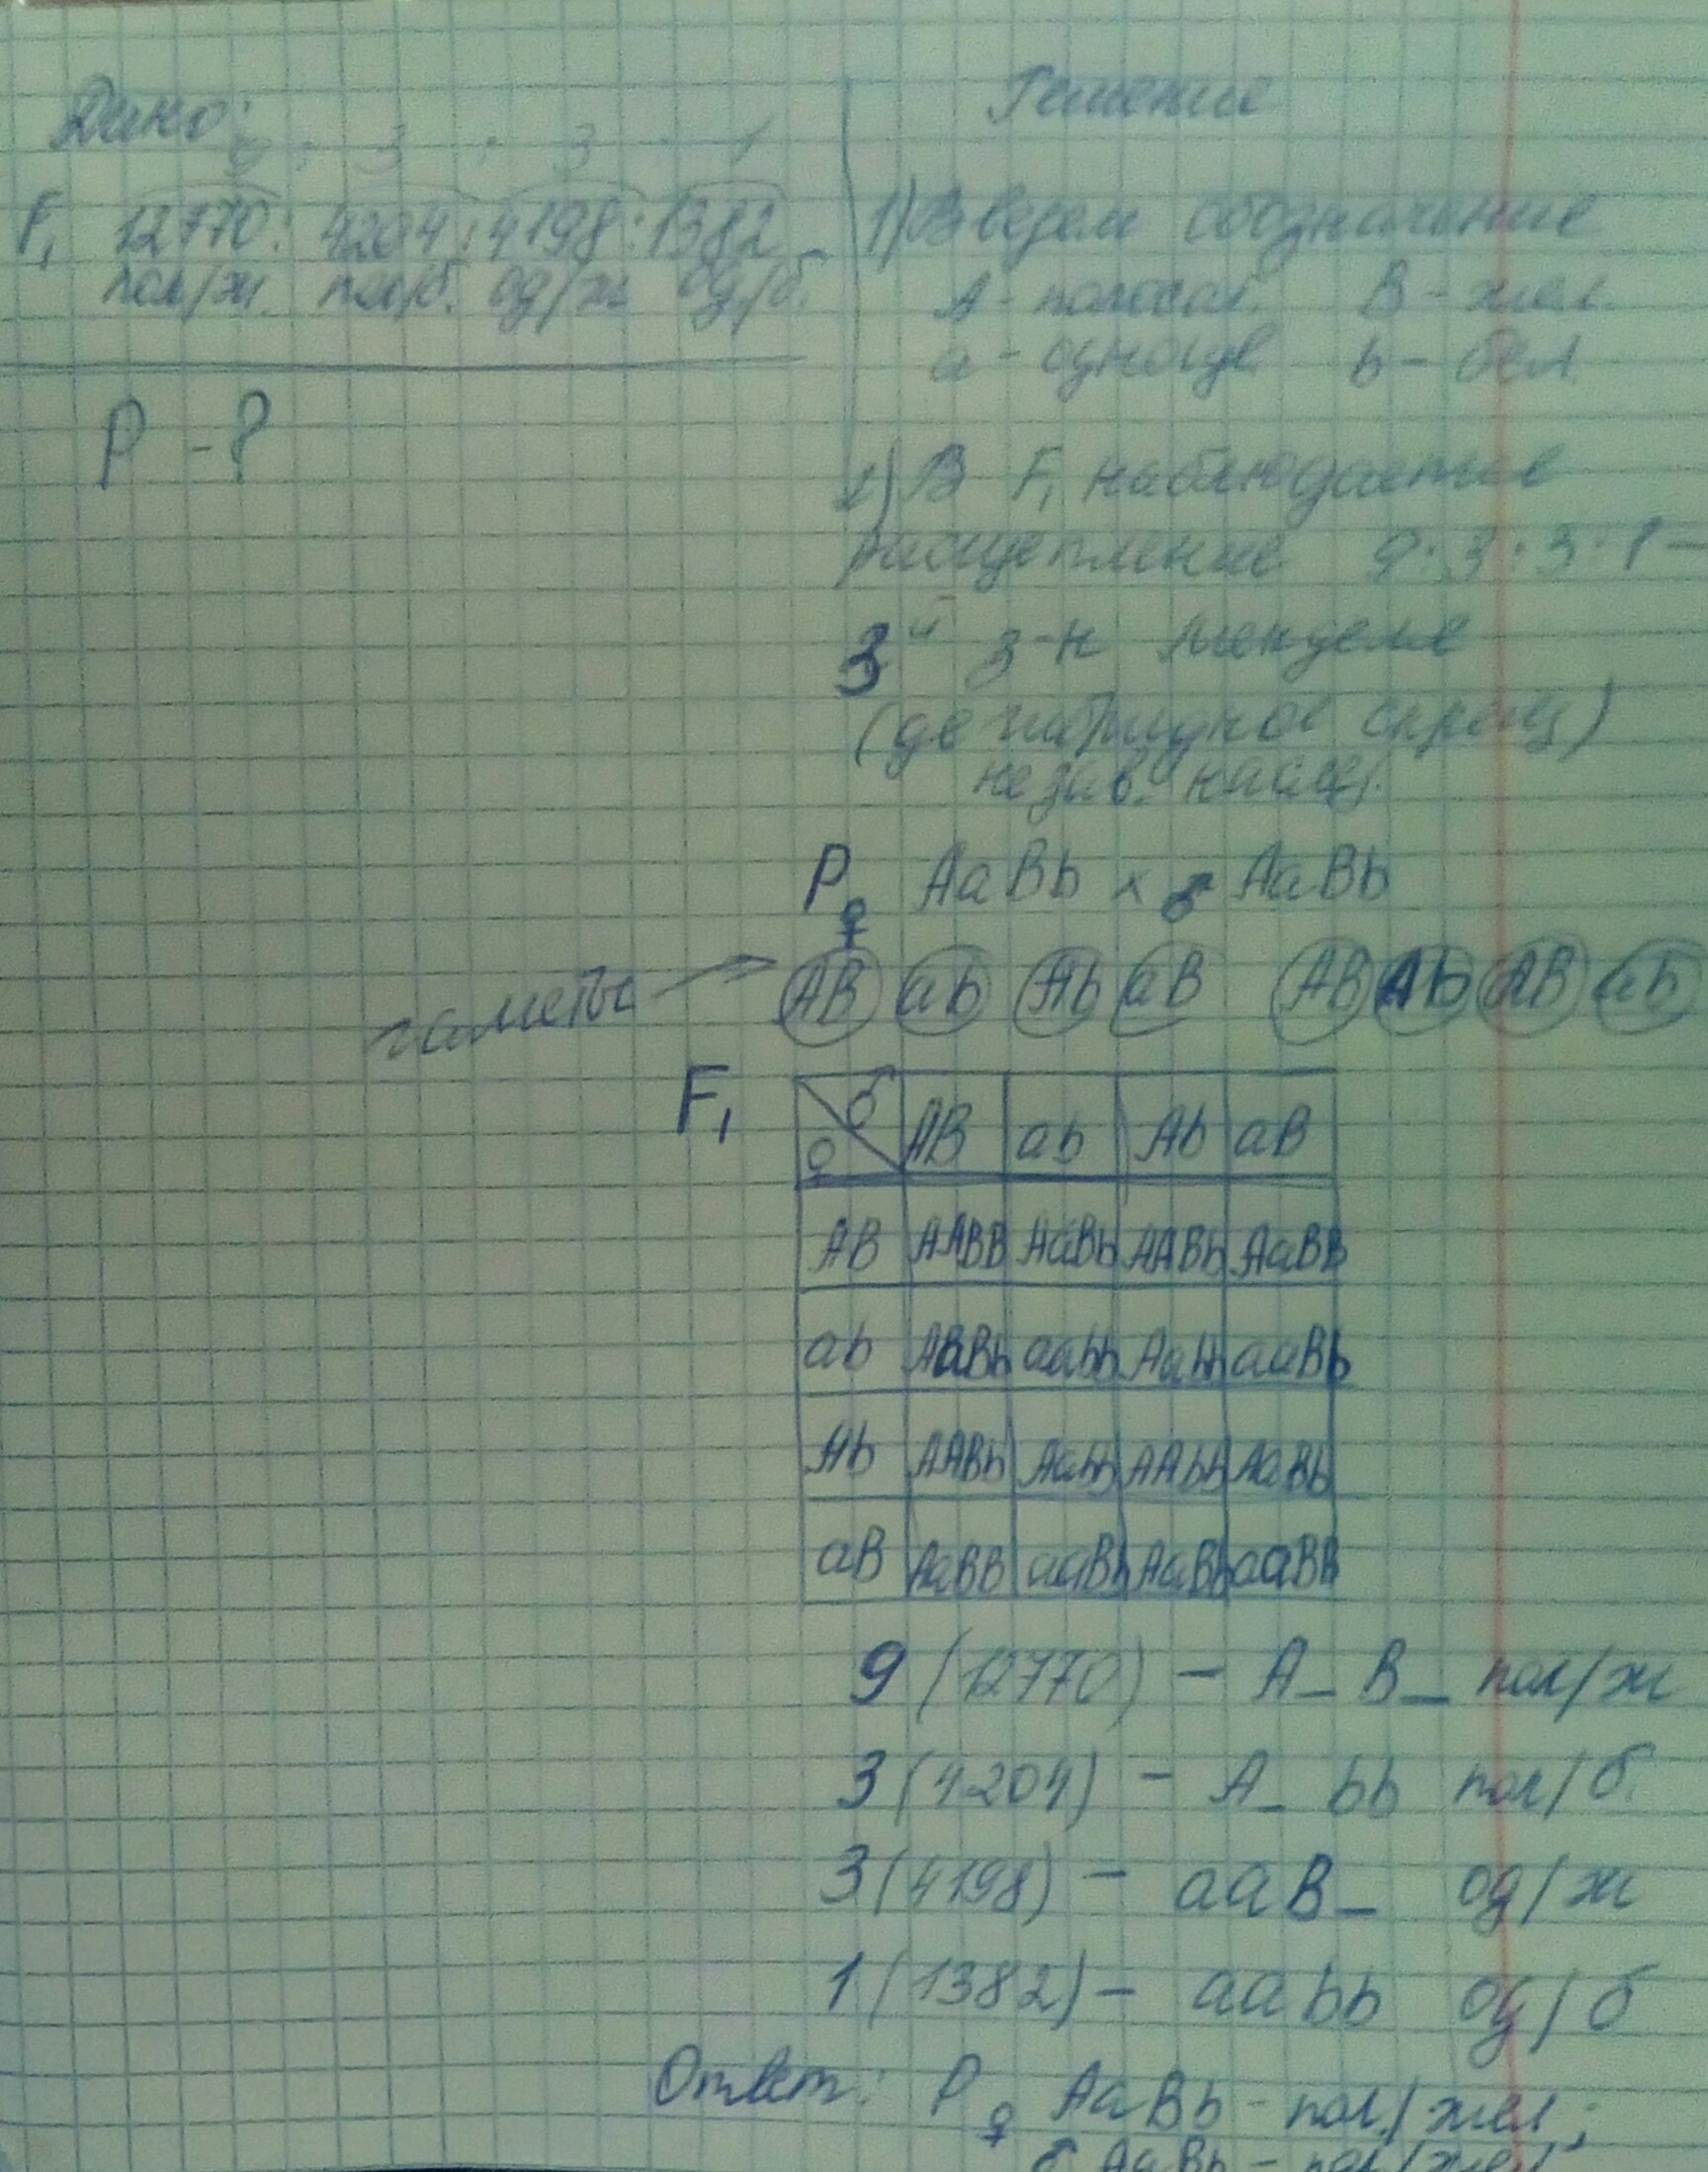 Дано:
9 : 3 : 3 : 1
F₁ 12770 : 4204 : 4198 : 1382
пол/ж. пол/б. од/ж од/б.
P - ?
Решение
1) Введем обозначение
A - полосат. B - жел.
a - одноцв. b - бел.
2) В F₁ наблюдается
расщепление 9:3:3:1 -
3й з-н Менделя
(дигибридное скрещ)
незав. наслед.
P ♀ AaBb × ♂ AaBb
гаметы → AB ab Ab aB AB Ab aB ab
F₁
♀ ♂ AB ab Ab aB
AB AABB AaBb AABb AaBB
ab AaBb aabb Aabb aaBb
Ab AABb Aabb AAbb AaBb
aB AaBB aaBb AaBb aaBB
9 (12770) - A_ B_ пол/ж
3 (4204) - A_ bb пол/б.
3 (4198) - aaB_ од/ж
1 (1382) - aabb од/б
Ответ: P ♀ AaBb - пол./жел.;
♂ AaBb - пол./жел.